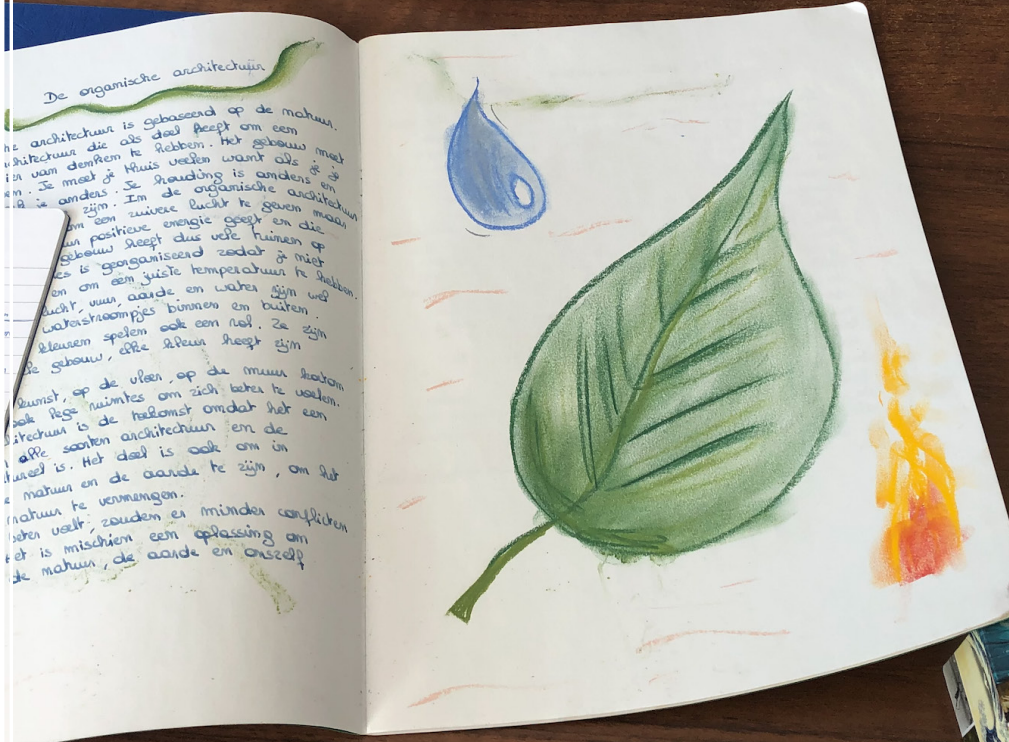 De organische architectuur
architectuur is gebaseerd op de natuur.
architectuur die als doel heeft om een
van denken te hebben. Het gebouw moet
Je moet je thuis voelen want als je je
je anders. Je houding is anders en
zijn. In de organische architectuur
een zuivere lucht te geven maar
positieve energie geeft en die
gebouw heeft dus vele tuinen op
is georganiseerd zodat je niet
en om een juiste temperatuur te hebben.
lucht, vuur, aarde en water zijn wel
waterstroompjes binnen en buiten.
kleuren spelen ook een rol. Ze zijn
gebouw, elke kleur heeft zijn
kunst, op de vloer, op de muur kortom
ook lege ruimtes om zich beter te voelen.
is de toekomst omdat het een
alle soorten architectuur en de
is. Het doel is ook om in
natuur en de aarde te zijn, om het
natuur te vermengen.
beter voelt, zouden er minder conflicten
is mischien een oplossing om
de natuur, de aarde en onszelf